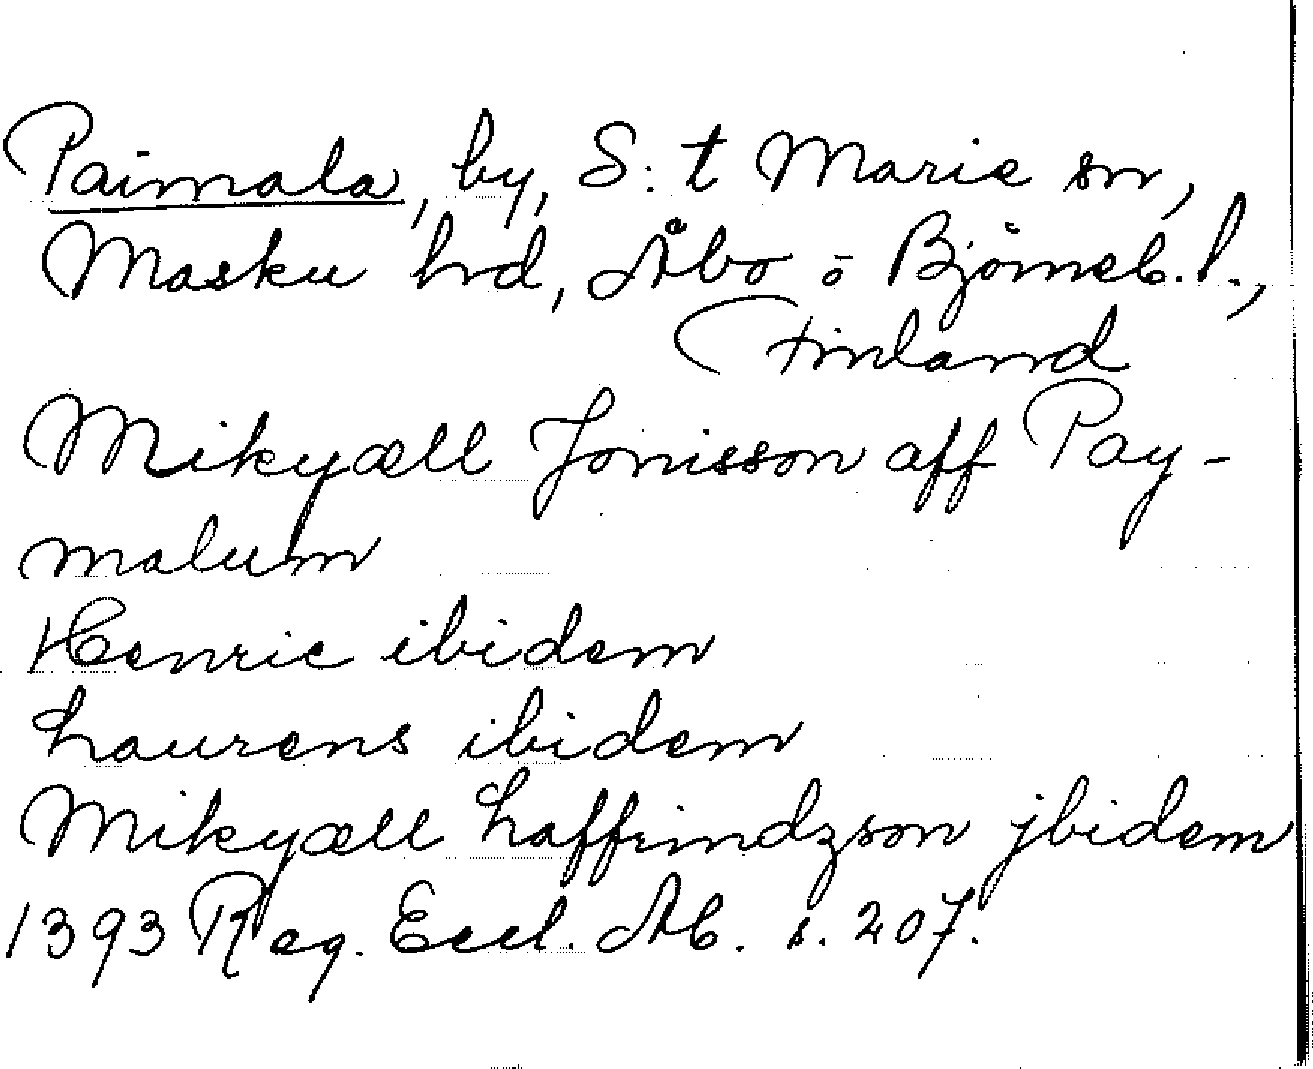 Paimala, by, S:t Marie sn,
Masku hrd, Åbo o Björneb. l.,
Finland
Mikyæll Jonisson aff Pay-
malum
Henric ibidem
Laurens ibidem
Mikyæll Laffrindzson jbidem
1393 Reg. Eccl. Ab. s. 207.